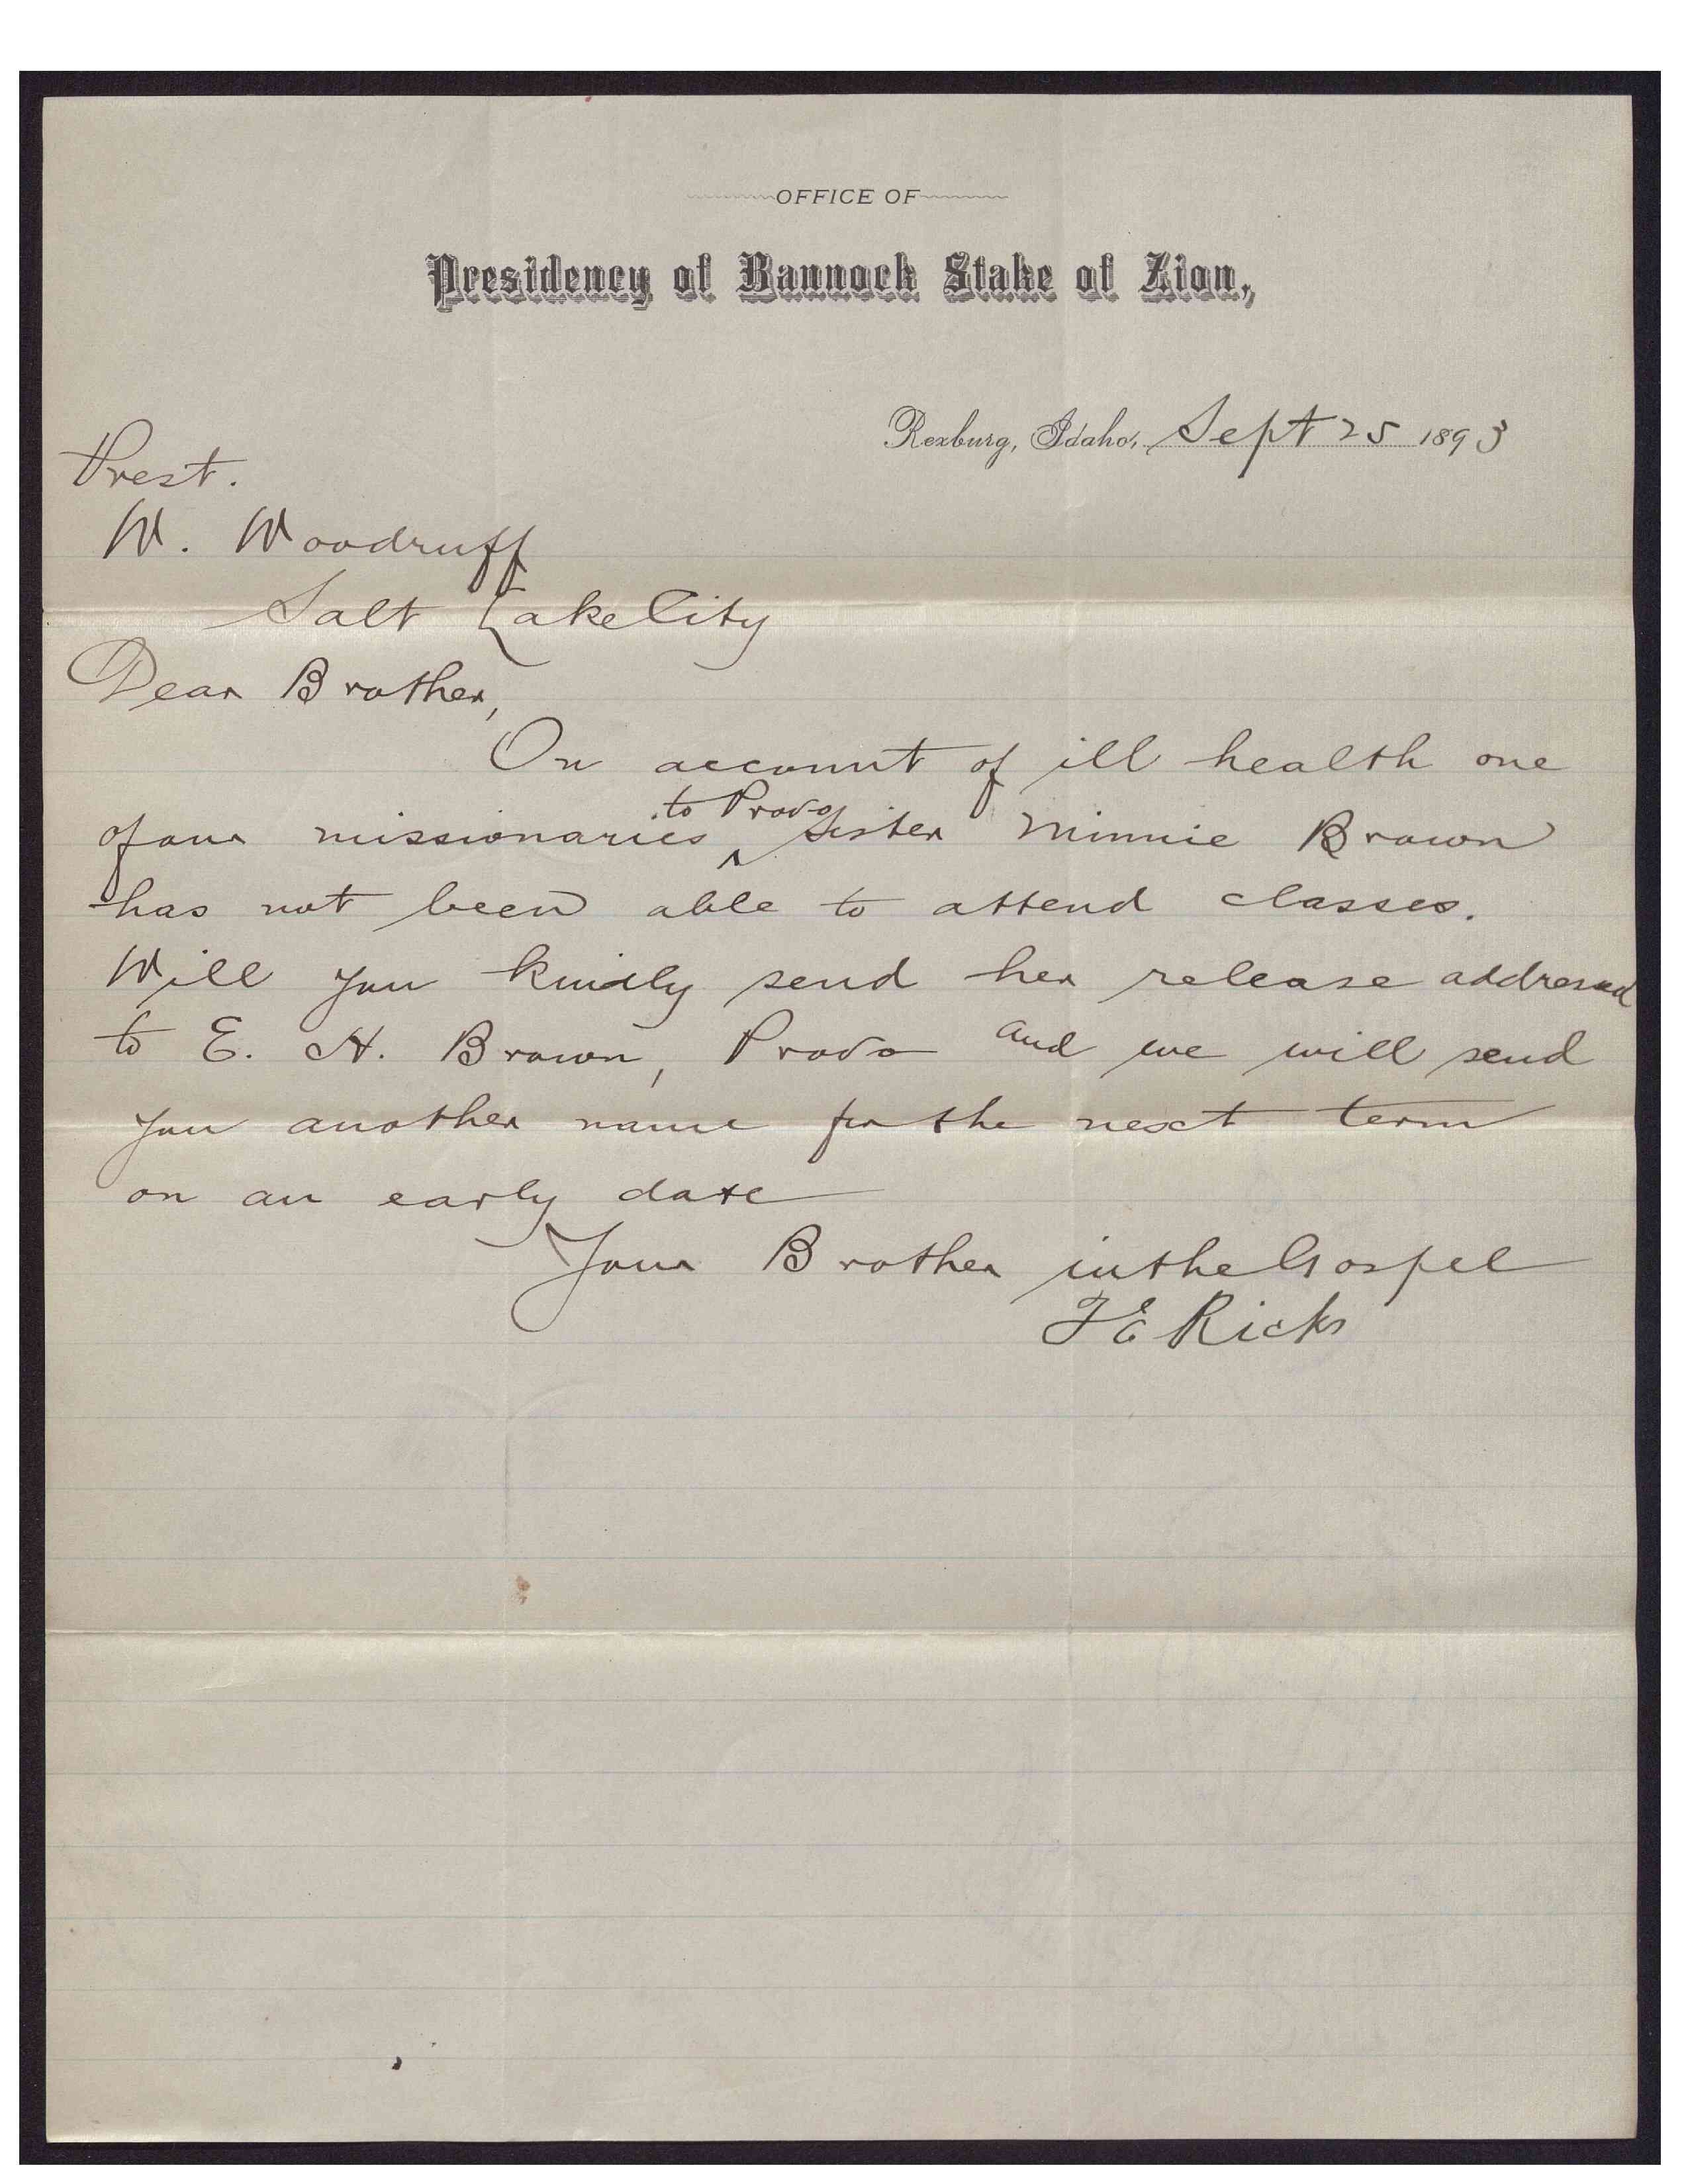 OFFICE OF
Presidency of Bannock Stake of Zion,
Rexburg, Idaho, Sept 25 1893
Prest.
W. Woodruff
Salt Lake City
Dear Brother,
On account of ill health one
of our missionaries ^to Provo Sister Minnie Brown
has not been able to attend classes.
Will you kindly send her release addressed
to E. H. Brown, Provo and we will send
you another name for the next term
on an early date
Your Brother in the Gospel
T E Ricks